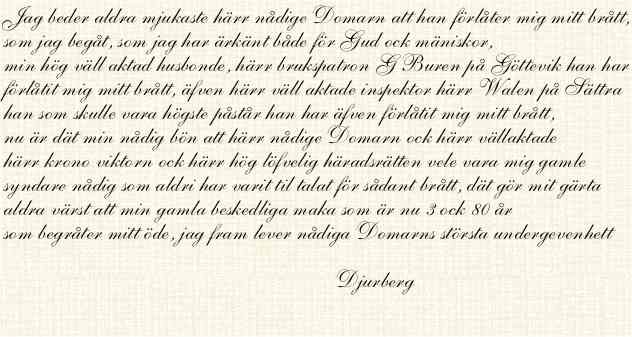 Jag beder aldra mjukaste härr nådige Domarn att han förlåter mig mitt brått,
som jag begåt, som jag har ärkänt både för Gud ock mäniskor,
min hög väll aktad husbonde, härr brukspatron G Buren på Göttevik han har
förlåtit mig mitt brått, äfven härr väll aktade inspektor härr Walen på Sättra
han som skulle vara högste påstår han har äfven förlåtit mig mitt brått,
nu är dät min nådig bön att härr nådige Domarn ock härr vällaktade
härr krono viktorn ock härr hög löfvelig häradsrätten vele vara mig gamle
syndare nådig som aldri har varit til talat för sådant brått, dät gör mit gärta
aldra värst att min gamla beskedliga maka som är nu 3 ock 80 år
som begråter mitt öde, jag fram lever nådiga Domarns största undergevenhett
Djurberg